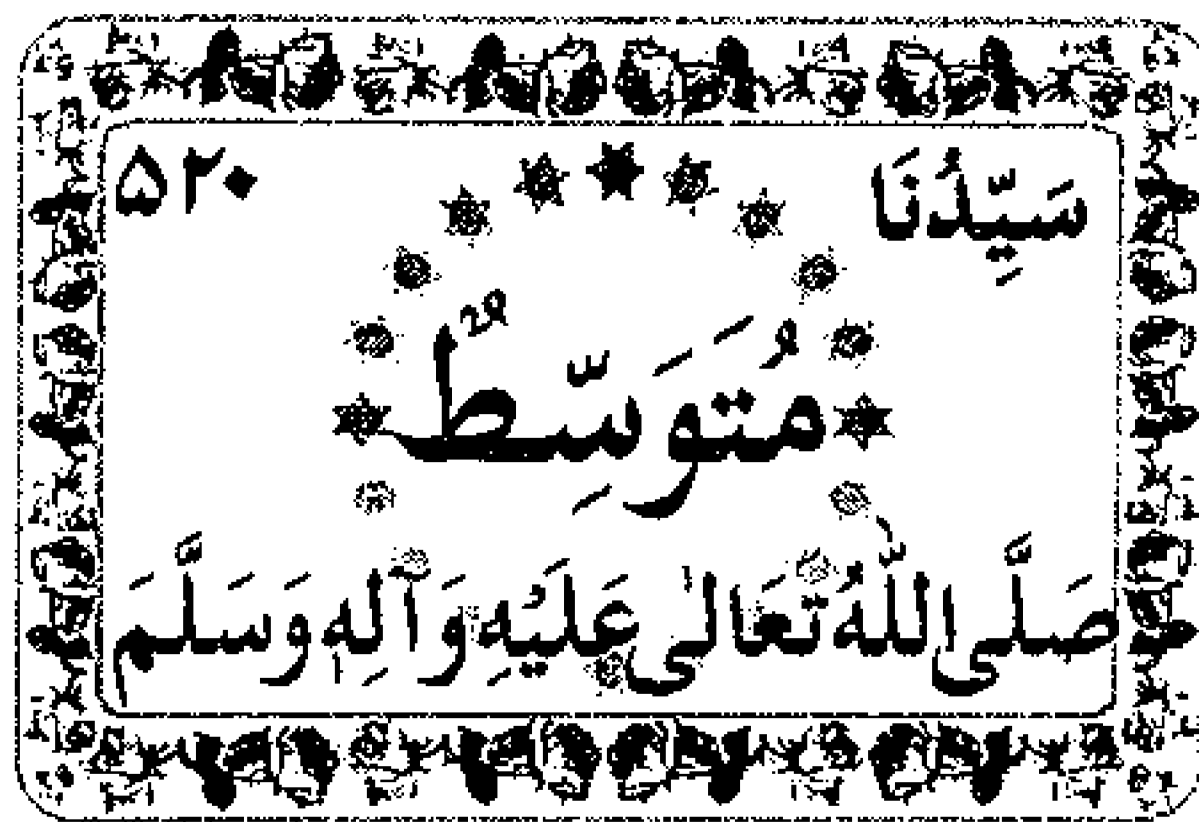 سَيِّدُنَا ۵۲۰
مُتَوَسِّطٌ
صَلَّى اللّٰهُ تَعَالٰى عَلَيْهِ وَآلِهٖ وَسَلَّمَ